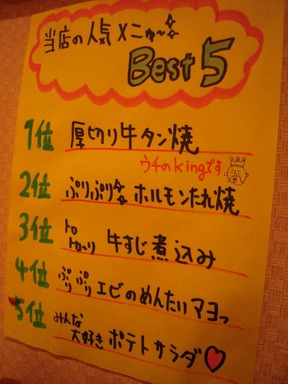 当店の人気メニュー
Best 5
1位 厚切り牛タン焼
ウチのkingです
2位 ぷりぷり ホルモンたれ焼
3位 トロトロ〜リ 牛すじ煮込み
4位 ぷりぷり エビのめんたいマヨっ
5位 みんな大好き ポテトサラダ♡